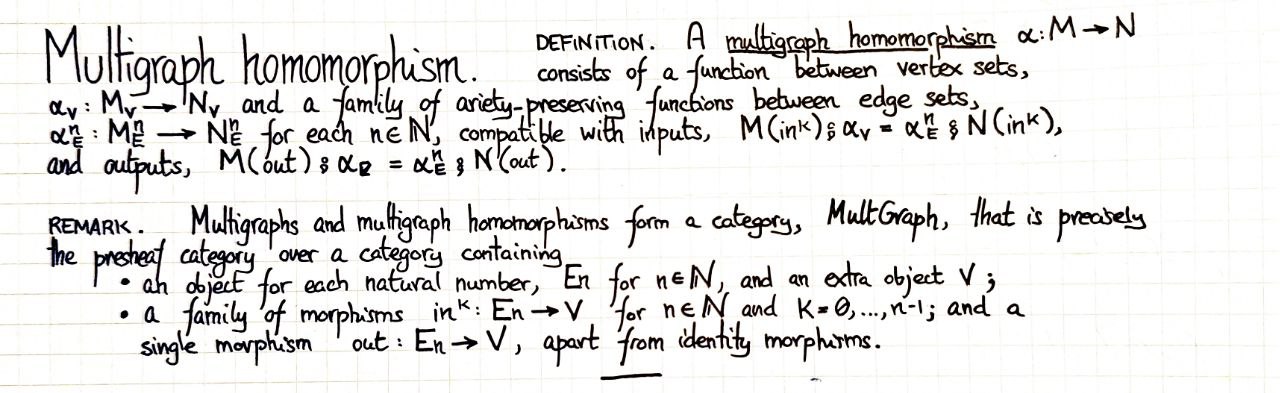 Multigraph homomorphism. DEFINITION. A multigraph homomorphism α: M → N
consists of a function between vertex sets,
αᵥ : Mᵥ → Nᵥ and a family of ariety-preserving functions between edge sets,
αⁿ_E : Mⁿ_E → Nⁿ_E for each n ∈ ℕ, compatible with inputs, M(inᵏ) ⨟ αᵥ = αⁿ_E ⨟ N(inᵏ),
and outputs, M(out) ⨟ α = αⁿ_E ⨟ N(out).
REMARK. Multigraphs and multigraph homomorphisms form a category, MultGraph, that is precisely
the presheaf category over a category containing
• an object for each natural number, En for n ∈ ℕ, and an extra object V ;
• a family of morphisms inᵏ : En → V for n ∈ ℕ and K = 0, ..., n-1; and a
single morphism out : En → V, apart from identity morphisms.